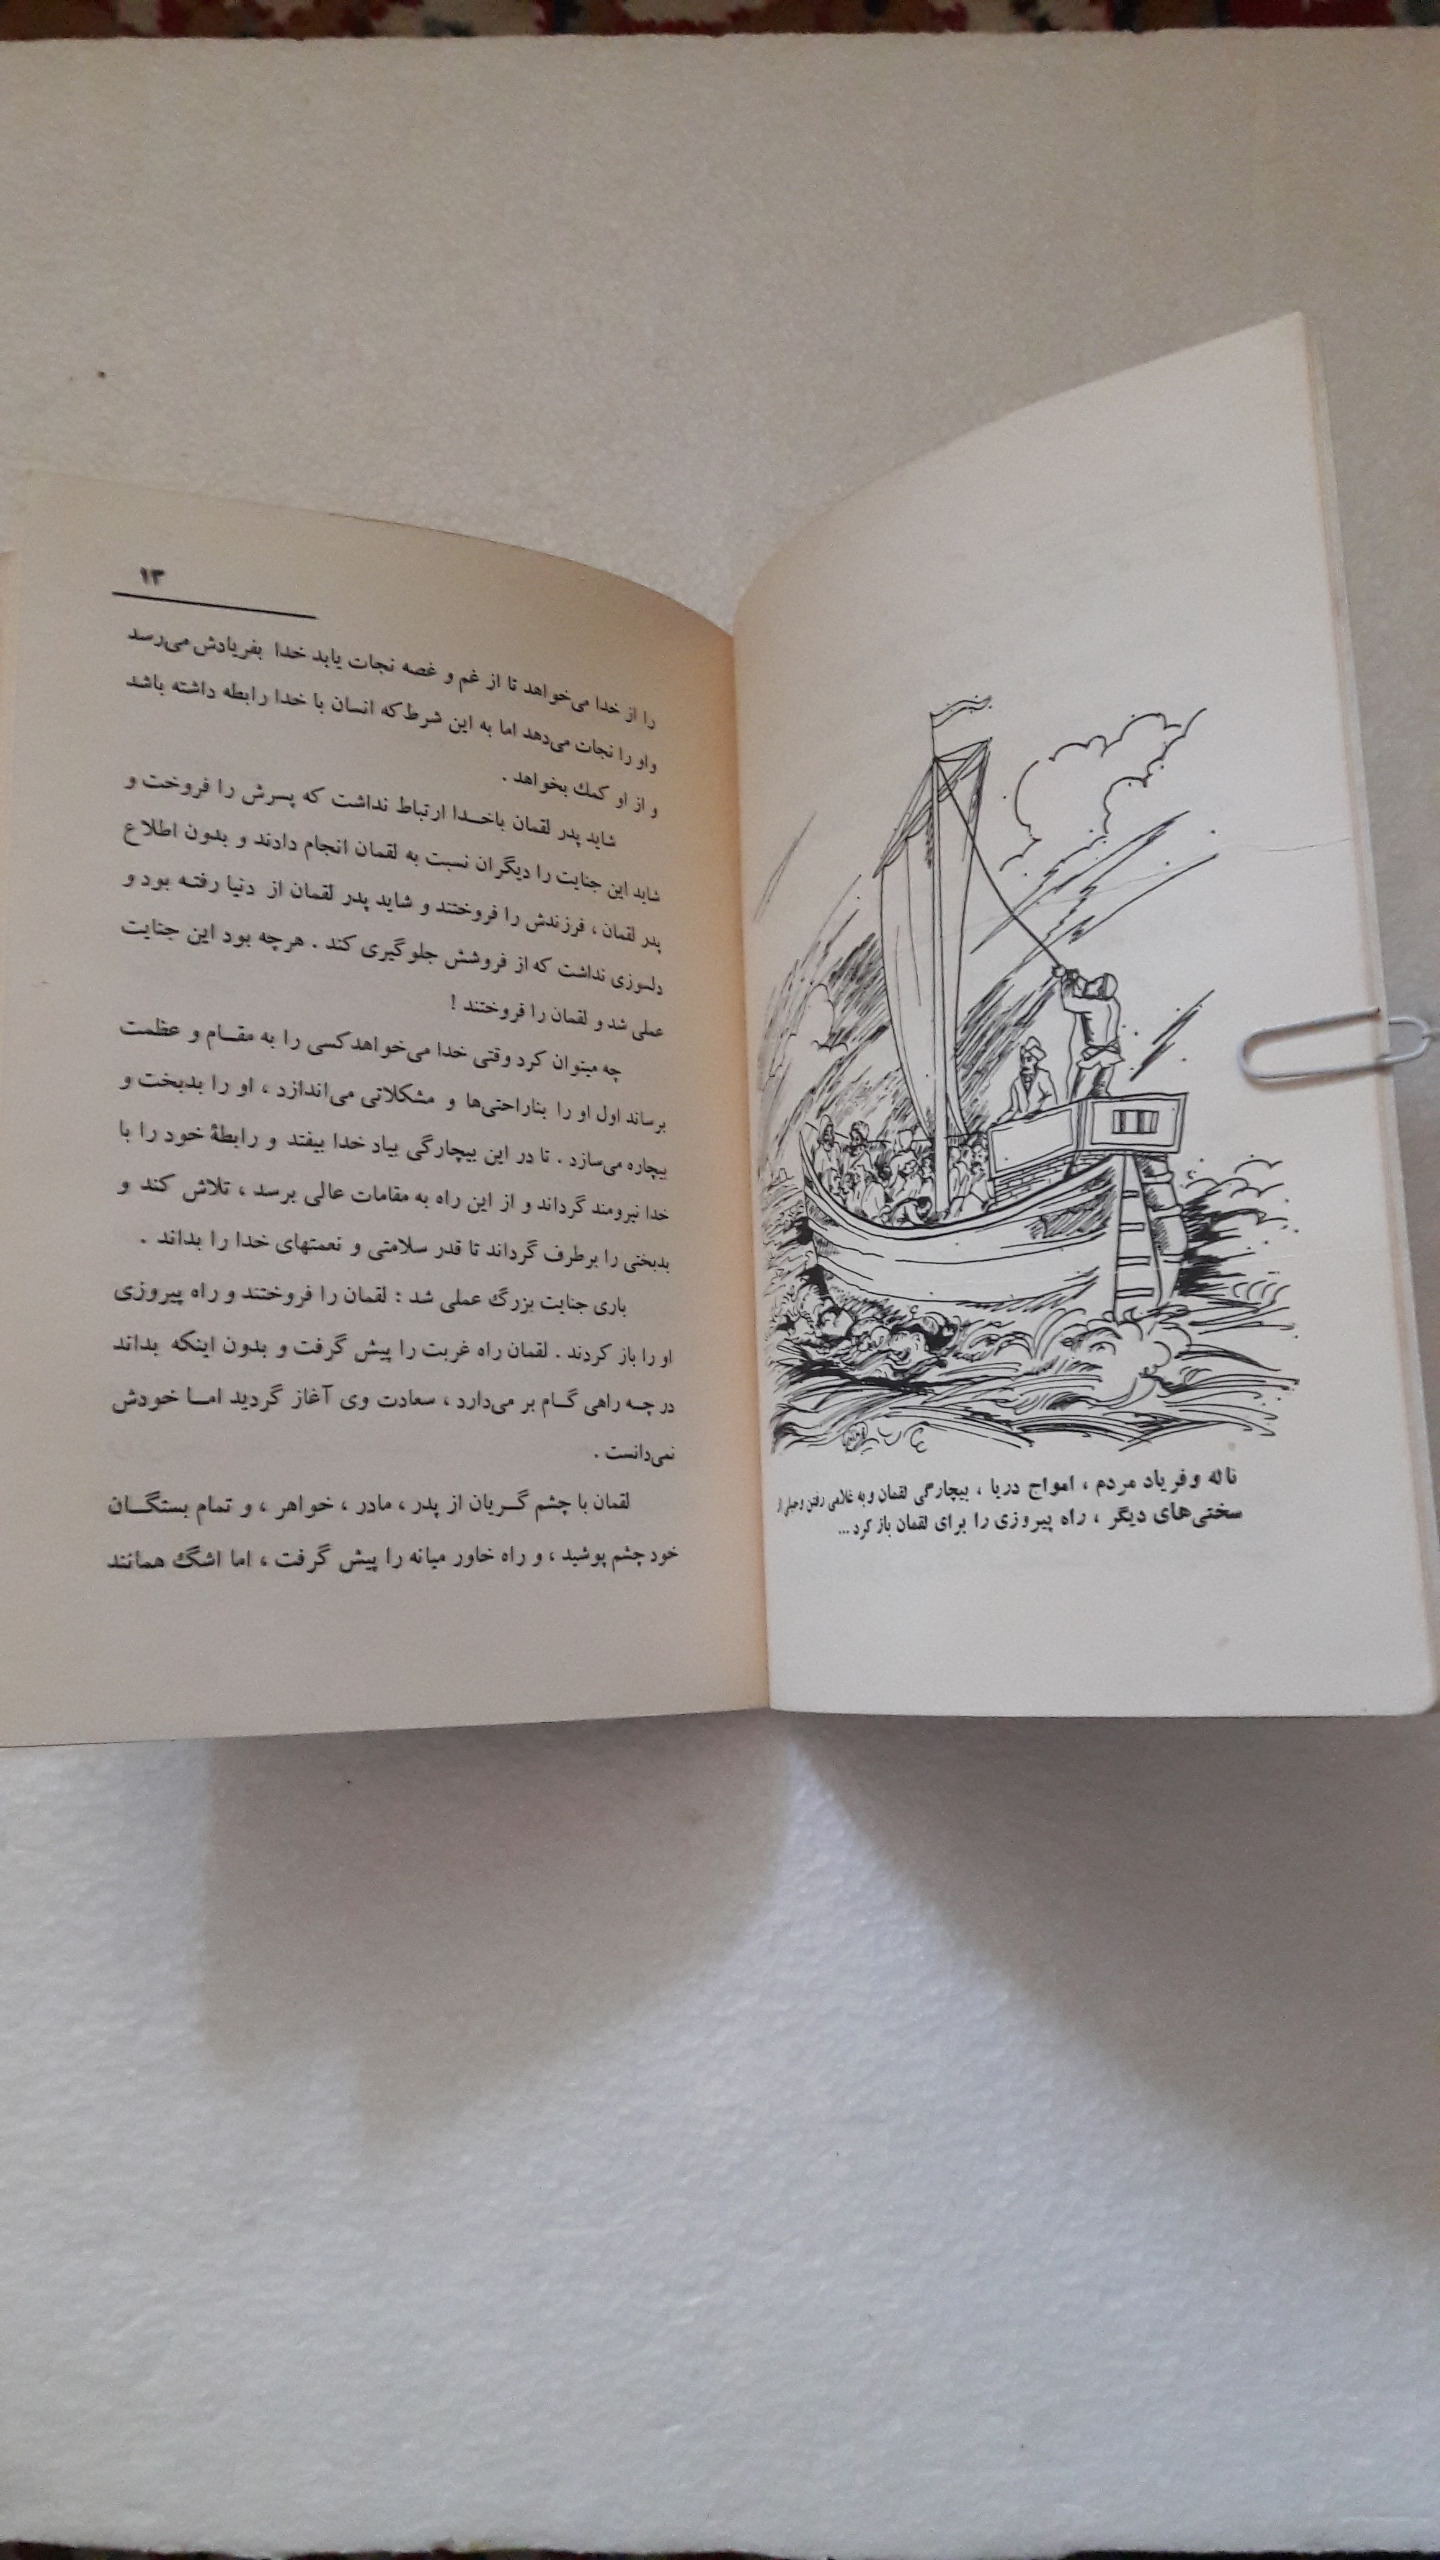 ناله وفریاد مردم ، امواج دریا ، بیچارگی لقمان وبه غلامی رفتن وخیلی از
سختی‌های دیگر ، راه پیروزی را برای لقمان باز کرد...
۱۳
را از خدا می‌خواهد تا از غم و غصه نجات یابد خدا بفریادش می‌رسد
واو را نجات می‌دهد اما به این شرط که انسان با خدا رابطه داشته باشد
و از او کمك بخواهد .
شاید پدر لقمان باخدا ارتباط نداشت که پسرش را فروخت و
شاید این جنایت را دیگران نسبت به لقمان انجام دادند و بدون اطلاع
پدر لقمان ، فرزندش را فروختند و شاید پدر لقمان از دنیا رفته بود و
دلسوزی نداشت که از فروشش جلوگیری کند . هرچه بود این جنایت
عملی شد و لقمان را فروختند !
چه میتوان کرد وقتی خدا می‌خواهدکسی را به مقام و عظمت
برساند اول او را بناراحتی‌ها و مشکلاتی می‌اندازد ، او را بدبخت و
بیچاره می‌سازد . تا در این بیچارگی بیاد خدا بیفتد و رابطهٔ خود را با
خدا نیرومند گرداند و از این راه به مقامات عالی برسد ، تلاش کند و
بدبختی را برطرف گرداند تا قدر سلامتی و نعمتهای خدا را بداند .
باری جنایت بزرگ عملی شد : لقمان را فروختند و راه پیروزی
او را باز کردند . لقمان راه غربت را پیش گرفت و بدون اینکه بداند
در چه راهی گام بر می‌دارد ، سعادت وی آغاز گردید اما خودش
نمی‌دانست .
لقمان با چشم گریان از پدر ، مادر ، خواهر ، و تمام بستگان
خود چشم پوشید ، و راه خاور میانه را پیش گرفت ، اما اشگ همانند